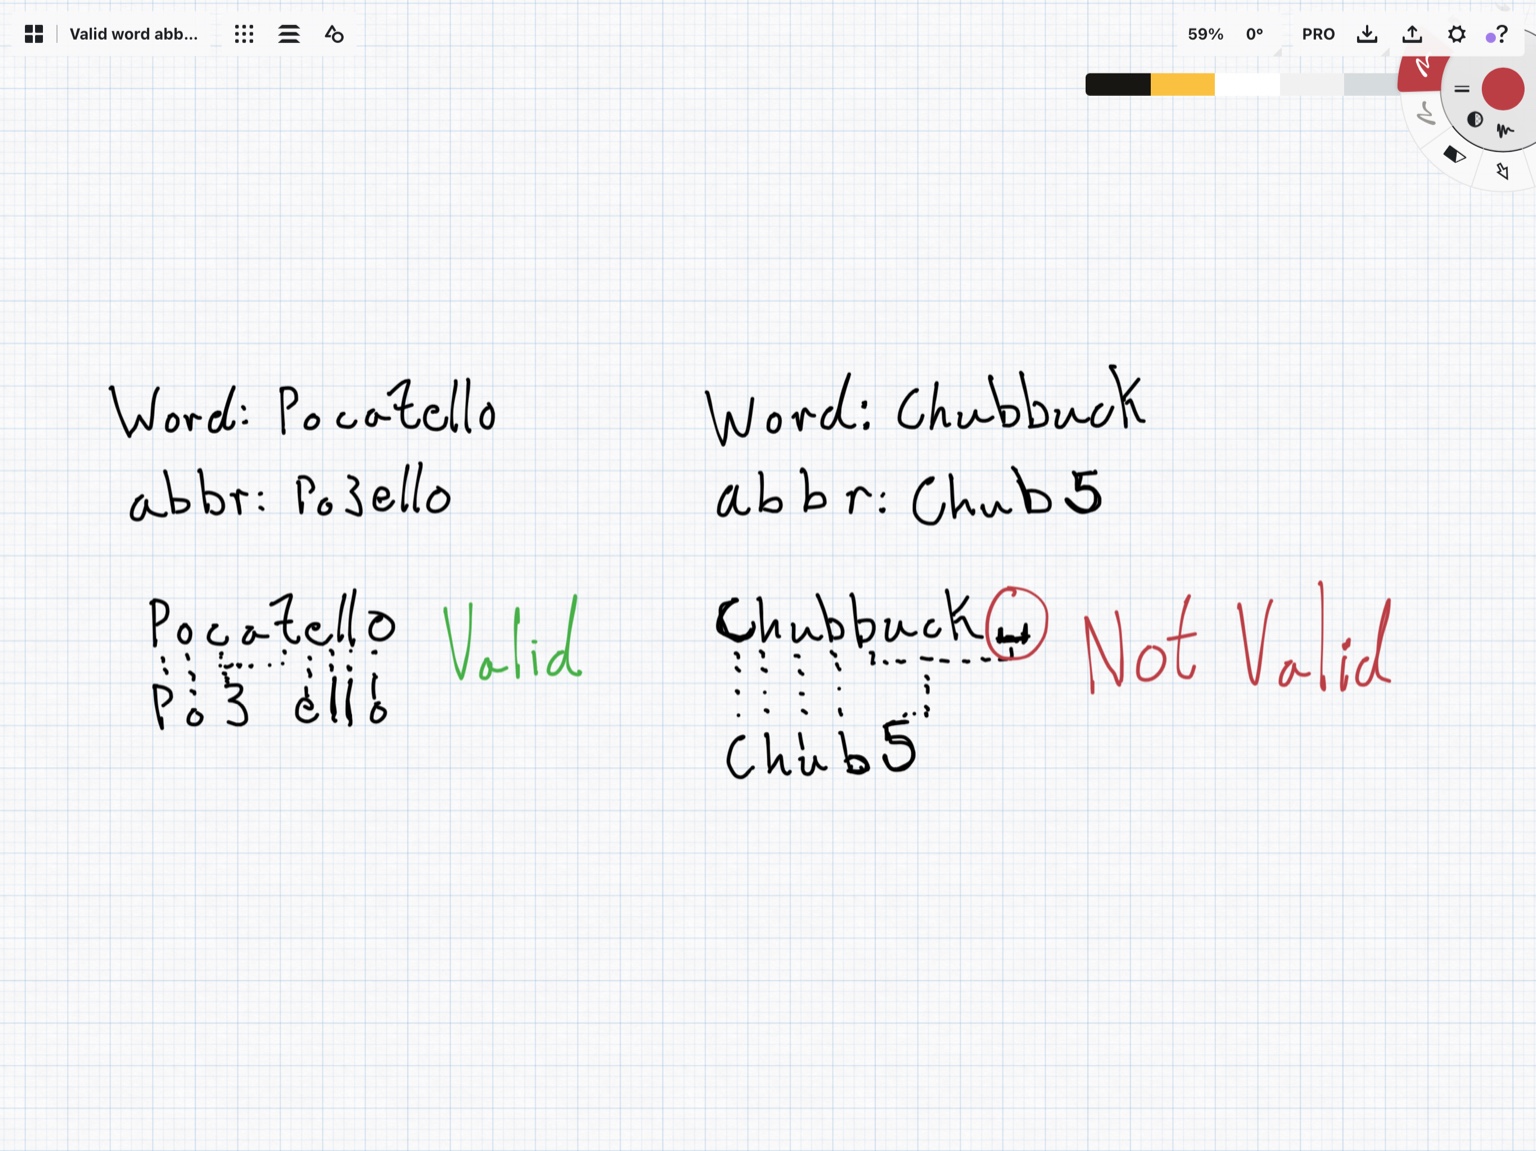 Valid word abb...
59% 0° PRO ?
Word: Pocatello
abbr: Po3ello
Pocatello Valid
Po3 ello
Word: Chubbuck
abbr: Chub5
Chubbuck_ Not Valid
Chub5